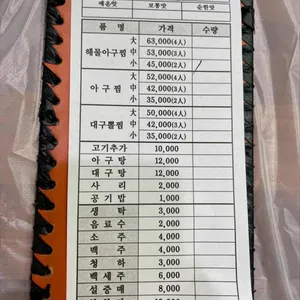 매운맛 보통맛 순한맛
품 명 가격 수량
해물아구찜 大 63,000(4人)
中 53,000(3人)
小 45,000(2人)
아 구 찜 大 52,000(4人)
中 42,000(3人)
小 35,000(2人)
대구뽈찜 大 50,000(4人)
中 42,000(3人)
小 35,000(2人)
고기추가 10,000
아 구 탕 12,000
대 구 탕 12,000
사 리 2,000
공 기 밥 1,000
생 탁 3,000
음 료 수 2,000
소 주 4,000
맥 주 4,000
청 하 3,000
백 세 주 6,000
설 중 매 8,000